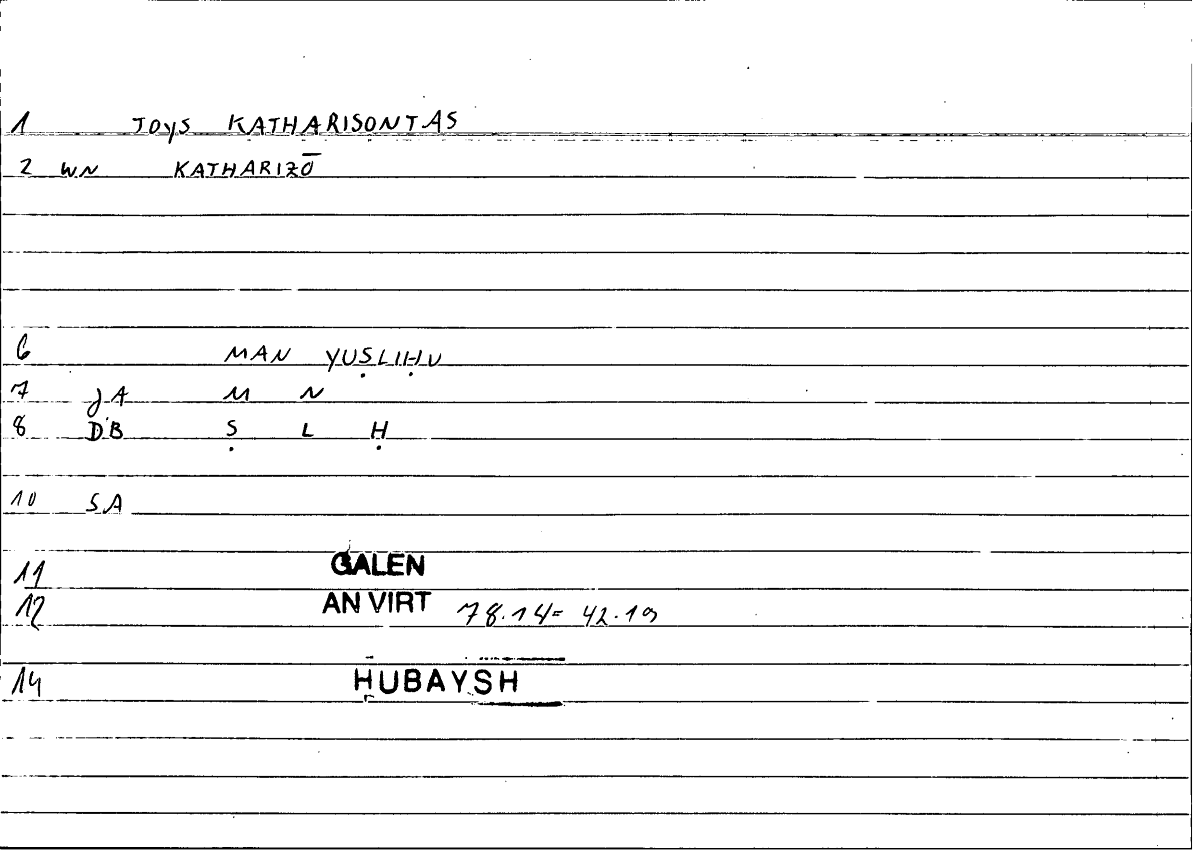 1 TOYS KATHARISONTAS
2 WN KATHARIZŌ
6 MAN YUṢLIḤU
7 JA M N
8 D'B Ṣ L Ḥ
10 SA
11 GALEN
12 AN VIRT 78.14= 42.19
14 ḤUBAYSH